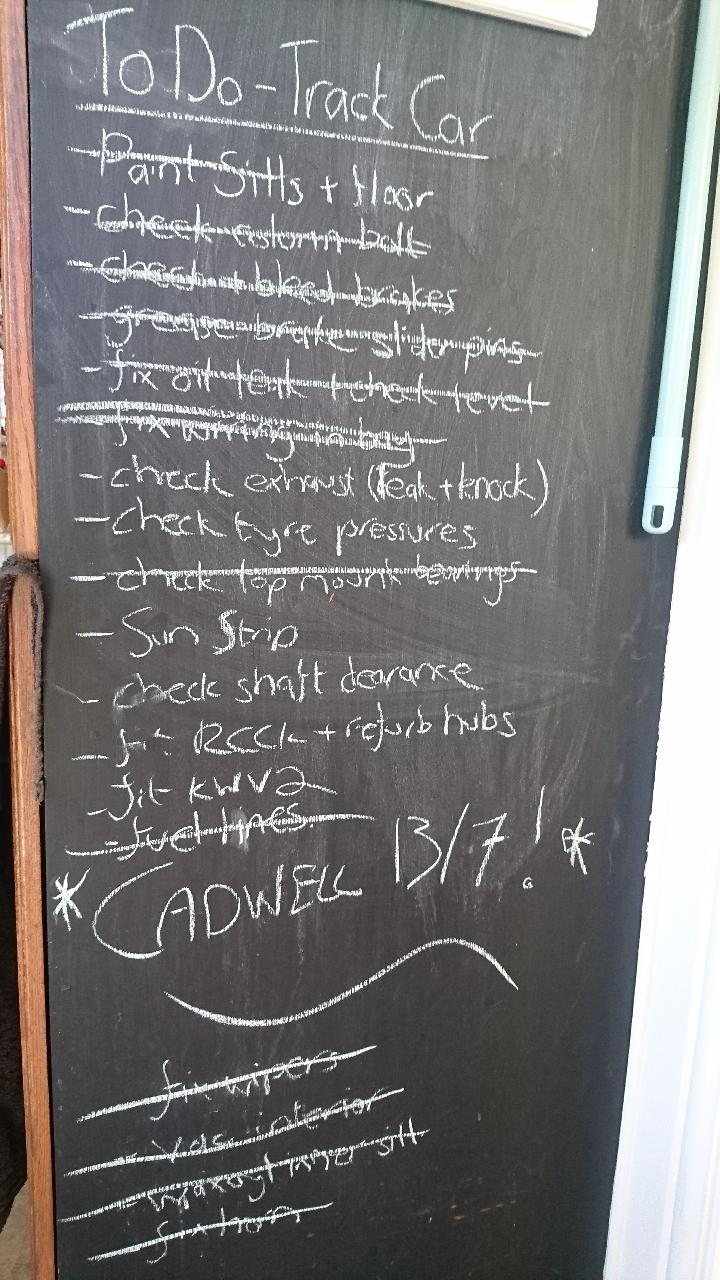 To Do - Track Car
- Paint Sills + floor
- check column bolt
- check + bleed brakes
- grease brake slider pins
- fix oil leak + check level
- fix wiring in bay
- check exhaust (leak + knock)
- check tyre pressures
- check top mount bearings
- Sun Strip
- check shaft clearance
- fit RSCK + refurb hubs
- fit KWV2
- fuel lines
* CADWELL 13/7! *
- fix wipers
- interior
- waxoyl inner sill
- fix horn